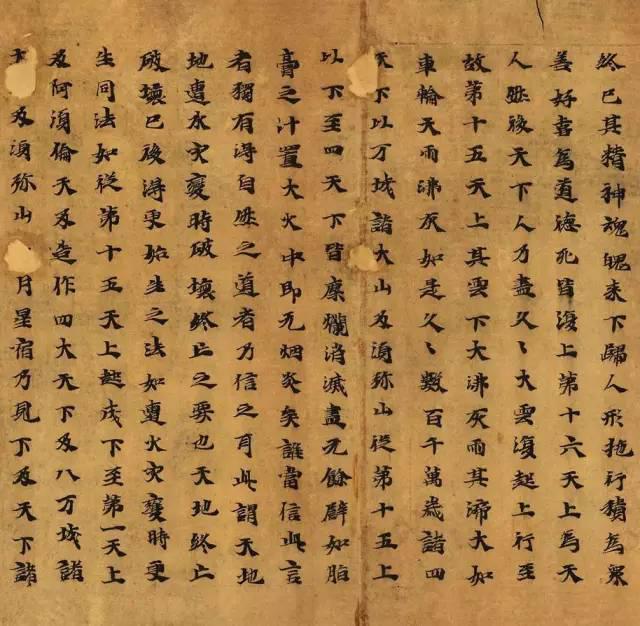 終已其精神魂魄来下歸人形施行積為眾
善好喜為道德死皆復上第十六天上為天
人然後天下人乃盡久〻大雲復起上行至
故第十五天上其雲下大沸灰雨其渧大如
車輪天雨沸灰如是久〻數百千萬歲諸四
天下以万城諸大山及湏弥山從第十五上
以下至四天下皆糜爛消滅盡无餘辟如脂
膏之汁置大火中即无烟炎矣誰當信此言
者獨有得自然之道者乃信之耳此謂天地
地遭水灾變時破壞終亡之要也天地終亡
破壞已後得更始生之法如遭火灾變時更
生同法如從第十五天上起戍下至第一天上
及阿湏倫天及造作四大天下及八万城諸
及湏弥山月星宿乃見下及天下諸